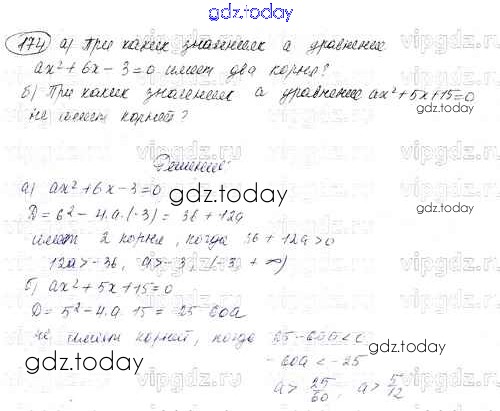 gdz.today
174 а) При каких значениях а уравнение
ax²+6x-3=0 имеет два корня?
б) При каких значениях а уравнение ax²+5x+15=0
не имеет корней?
gdz.today
Решение:
а) ax²+6x-3=0
gdz.today
D = 6²-4·a·(-3) = 36+12a
имеет 2 корня, когда 36+12a>0
12a>-36, a>-3, (-3, +∞)
б) ax²+5x+15=0
gdz.today
D = 5²-4·a·15 = 25-60a
не имеет корней, когда 25-60a<0
gdz.today
-60a<-25
a> 25/60, a> 5/12
gdz.today
vipgdz.ru